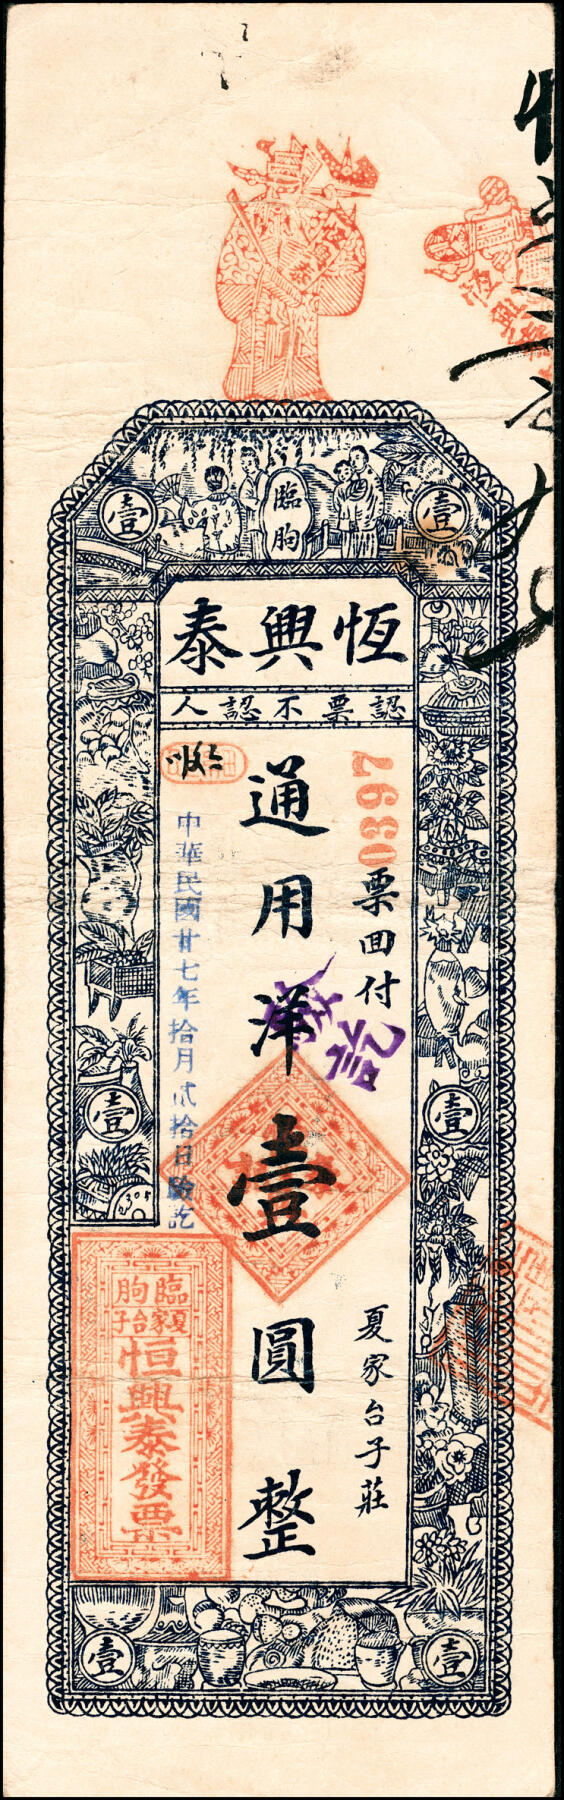 臨朐
壹
壹
恆興泰
認票不認人
0397
票回付
夏家台子莊
通用洋壹圓整
中華民國廿七年拾月貳拾日驗訖
壹
壹
臨朐
夏家台子
恒興泰發票
壹
壹